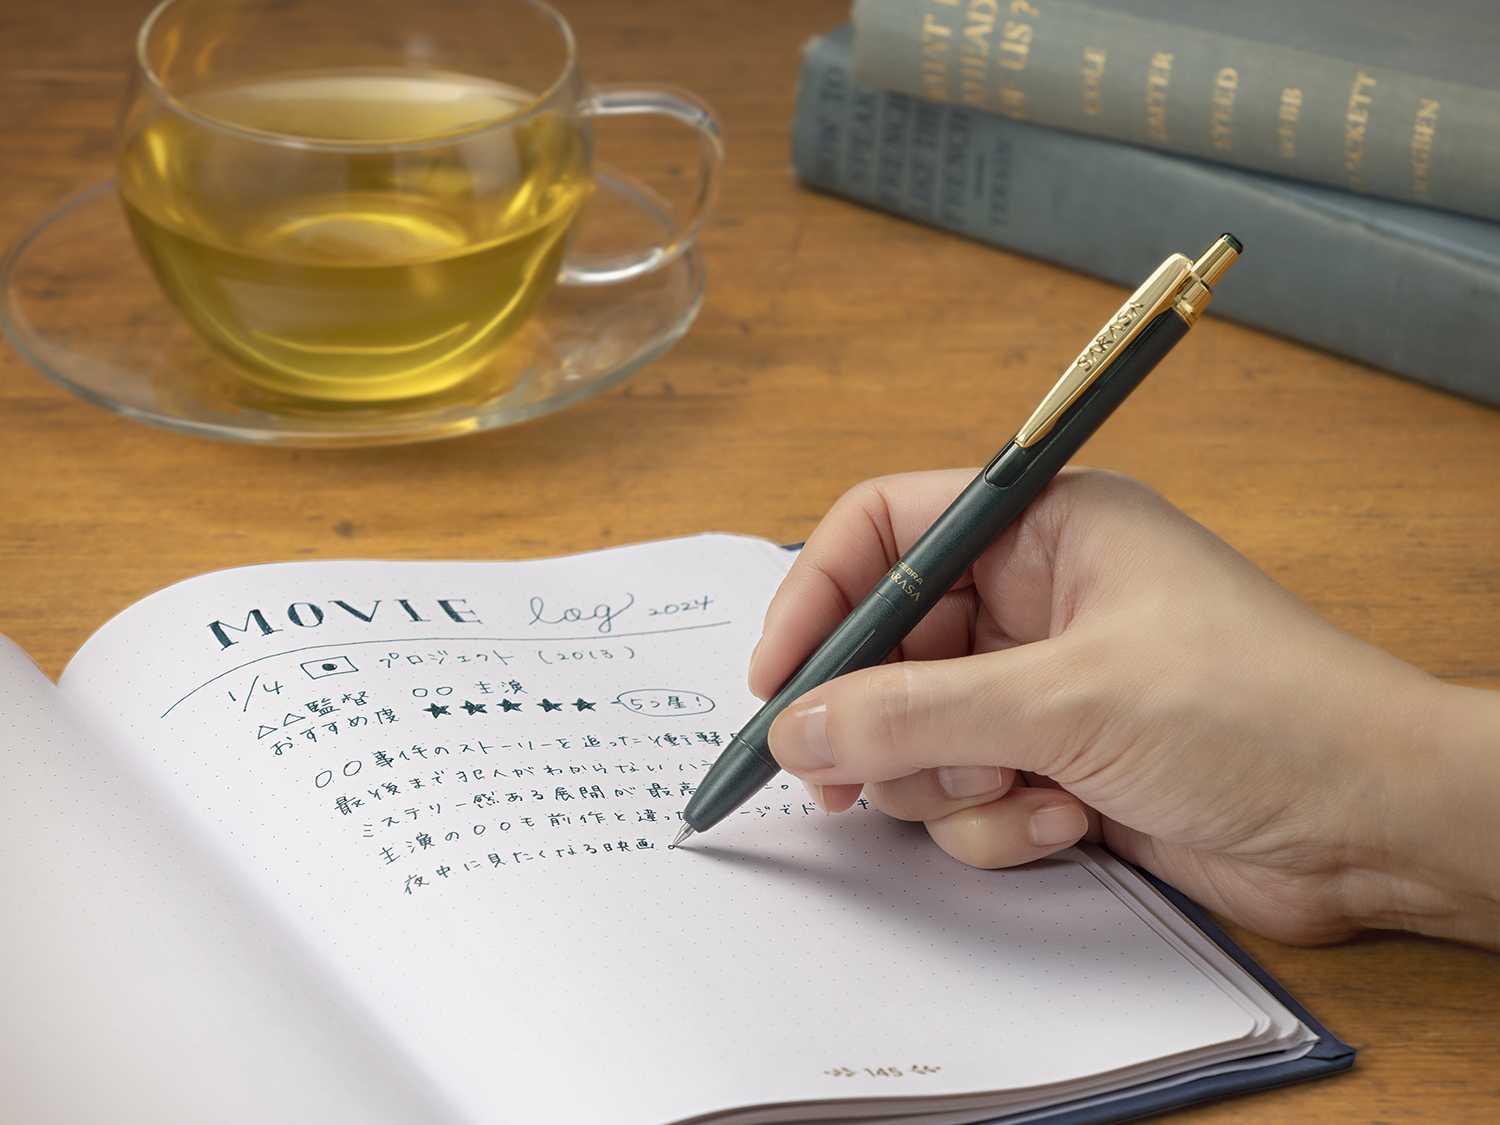 OF US?
SARASA
ZEBRA
SARASA
MOVIE log 2024
1/4 プロジェクト (2013)
△△監督 〇〇主演
おすすめ度 ★★★★★ 5つ星!
〇〇事件のストーリーを追った衝撃
最後まで犯人がわからない
ミステリー感ある展開が最高
主演の〇〇も前作と違った
夜中に見たくなる映画。
145